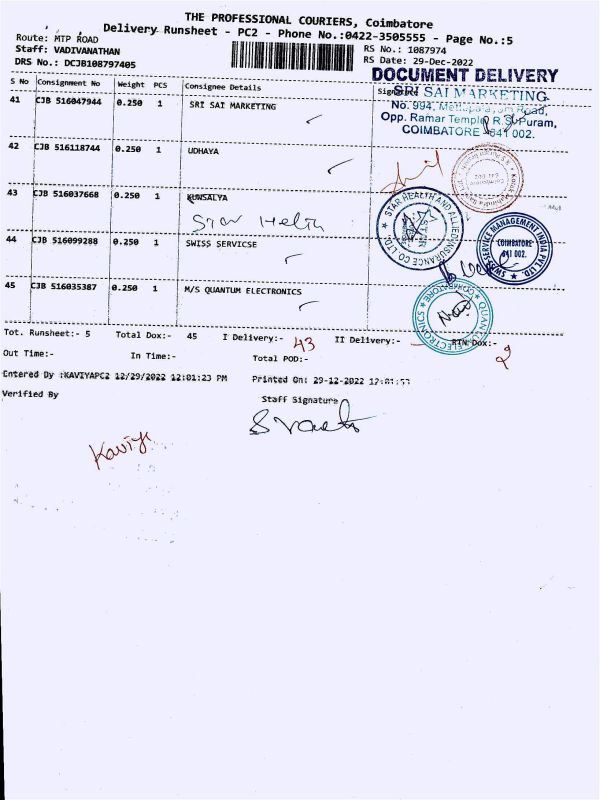 THE PROFESSIONAL COURIERS, Coimbatore
Delivery Runsheet - PC2 - Phone No.:0422-3505555 - Page No.:5
Route: MTP ROAD
RS No.: 1087974
Staff: VADIVANATHAN
RS Date: 29-Dec-2022
DRS No.: DCJB108797405
DOCUMENT DELIVERY
S No Consignment No Weight PCS Consignee Details Signature
SRI SAI MARKETING
No. 994, Road,
Opp. Ramar Temple, R.S. Puram,
COIMBATORE - 641 002.
41 CJB 516047944 0.250 1 SRI SAI MARKETING
42 CJB 516118744 0.250 1 UDHAYA
43 CJB 516037668 0.250 1 KUNSALYA
Star Helth
STAR HEALTH AND ALLIED INSURANCE CO LTD.
44 CJB 516099288 0.250 1 SWISS SERVICSE
SWISS SERVICE MANAGEMENT INDIA PVT LTD.
COIMBATORE
641 002.
45 CJB 516035387 0.250 1 M/S QUANTUM ELECTRONICS
QUANTUM ELECTRONICS
COIMBATORE
Tot. Runsheet:- 5 Total Dox:- 45 I Delivery:- 43 II Delivery:- RTN Dox:- 2
Out Time:- In Time:- Total POD:-
Entered By :KAVIYAPC2 12/29/2022 12:01:23 PM Printed On: 29-12-2022 12:01:53
Verified By Staff Signature
Kaviya